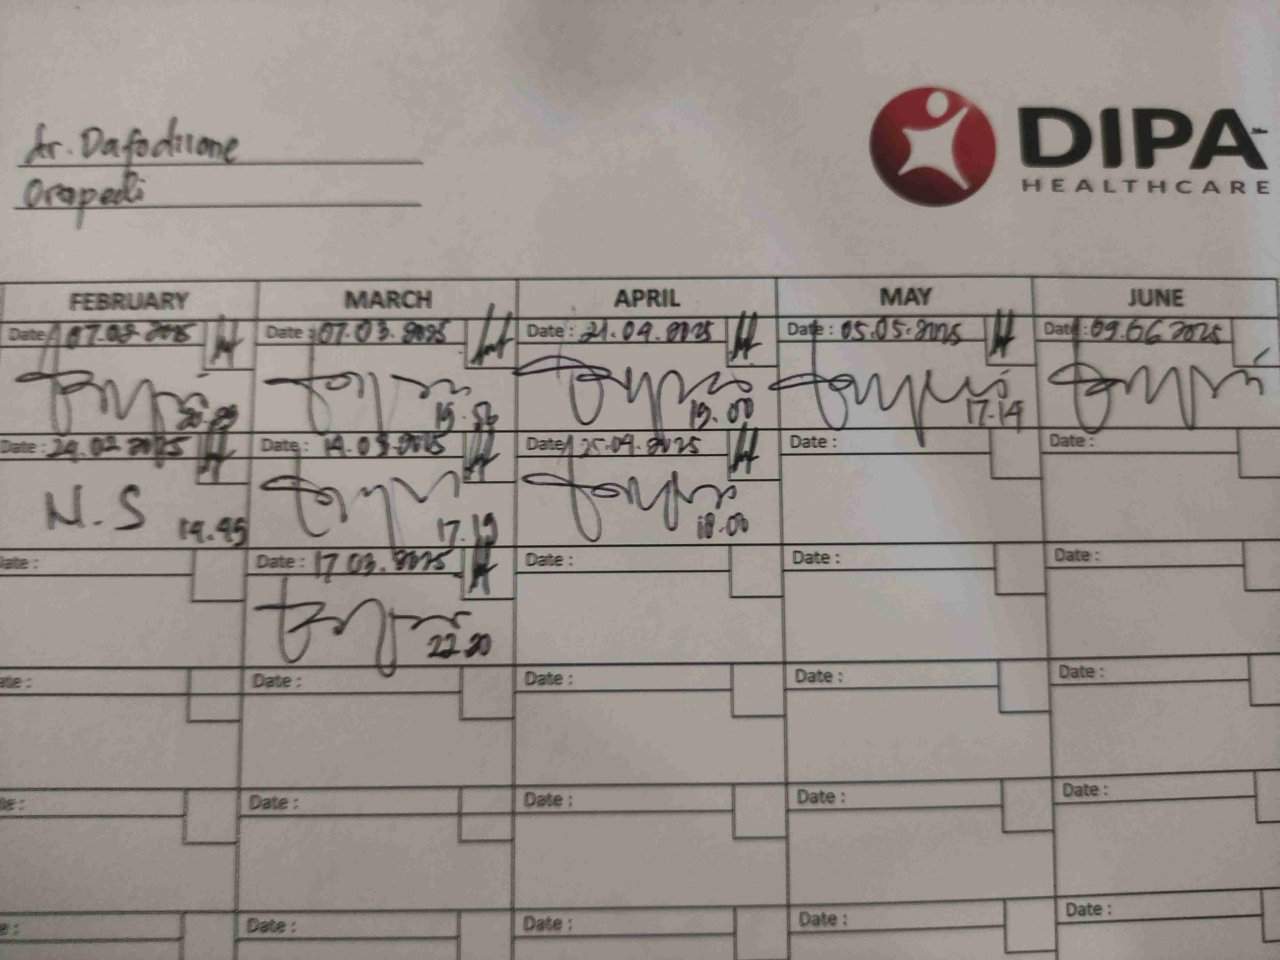 dr. Dafodilone
Oropedi
DIPA
HEALTHCARE
FEBRUARY MARCH APRIL MAY JUNE
Date: 07.02 2025 Date: 07.03.2025 Date: 21.04.2025 Date: 05.05.2025 Date: 09.06 2025
19.00 17.19
Date: 24.02 2025 Date: 14.03.2025 Date: 25.04.2025 Date: Date:
N.S 19.45 17.19 18.00
Date: Date: 17.03.2025 Date: Date: Date:
22.20
Date: Date: Date: Date: Date:
Date: Date: Date: Date:
Date: Date: Date: Date: